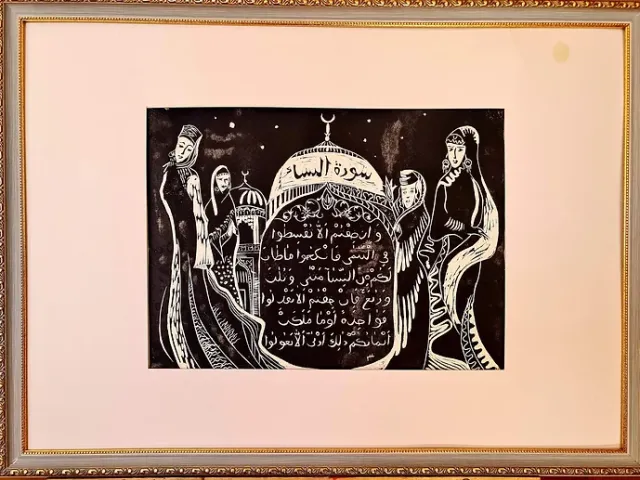 سورة النساء
وَإِنْ خِفْتُمْ أَلَّا تُقْسِطُوا
فِي الْيَتٰمٰى فَانْكِحُوا مَا طَابَ
لَكُمْ مِنَ النِّسَآءِ مَثْنٰى وَثُلٰثَ
وَرُبٰعَ فَإِنْ خِفْتُمْ أَلَّا تَعْدِلُوا
فَوَاحِدَةً أَوْ مَا مَلَكَتْ
أَيْمَانُكُمْ ذٰلِكَ أَدْنٰى أَلَّا تَعُولُوا
٣